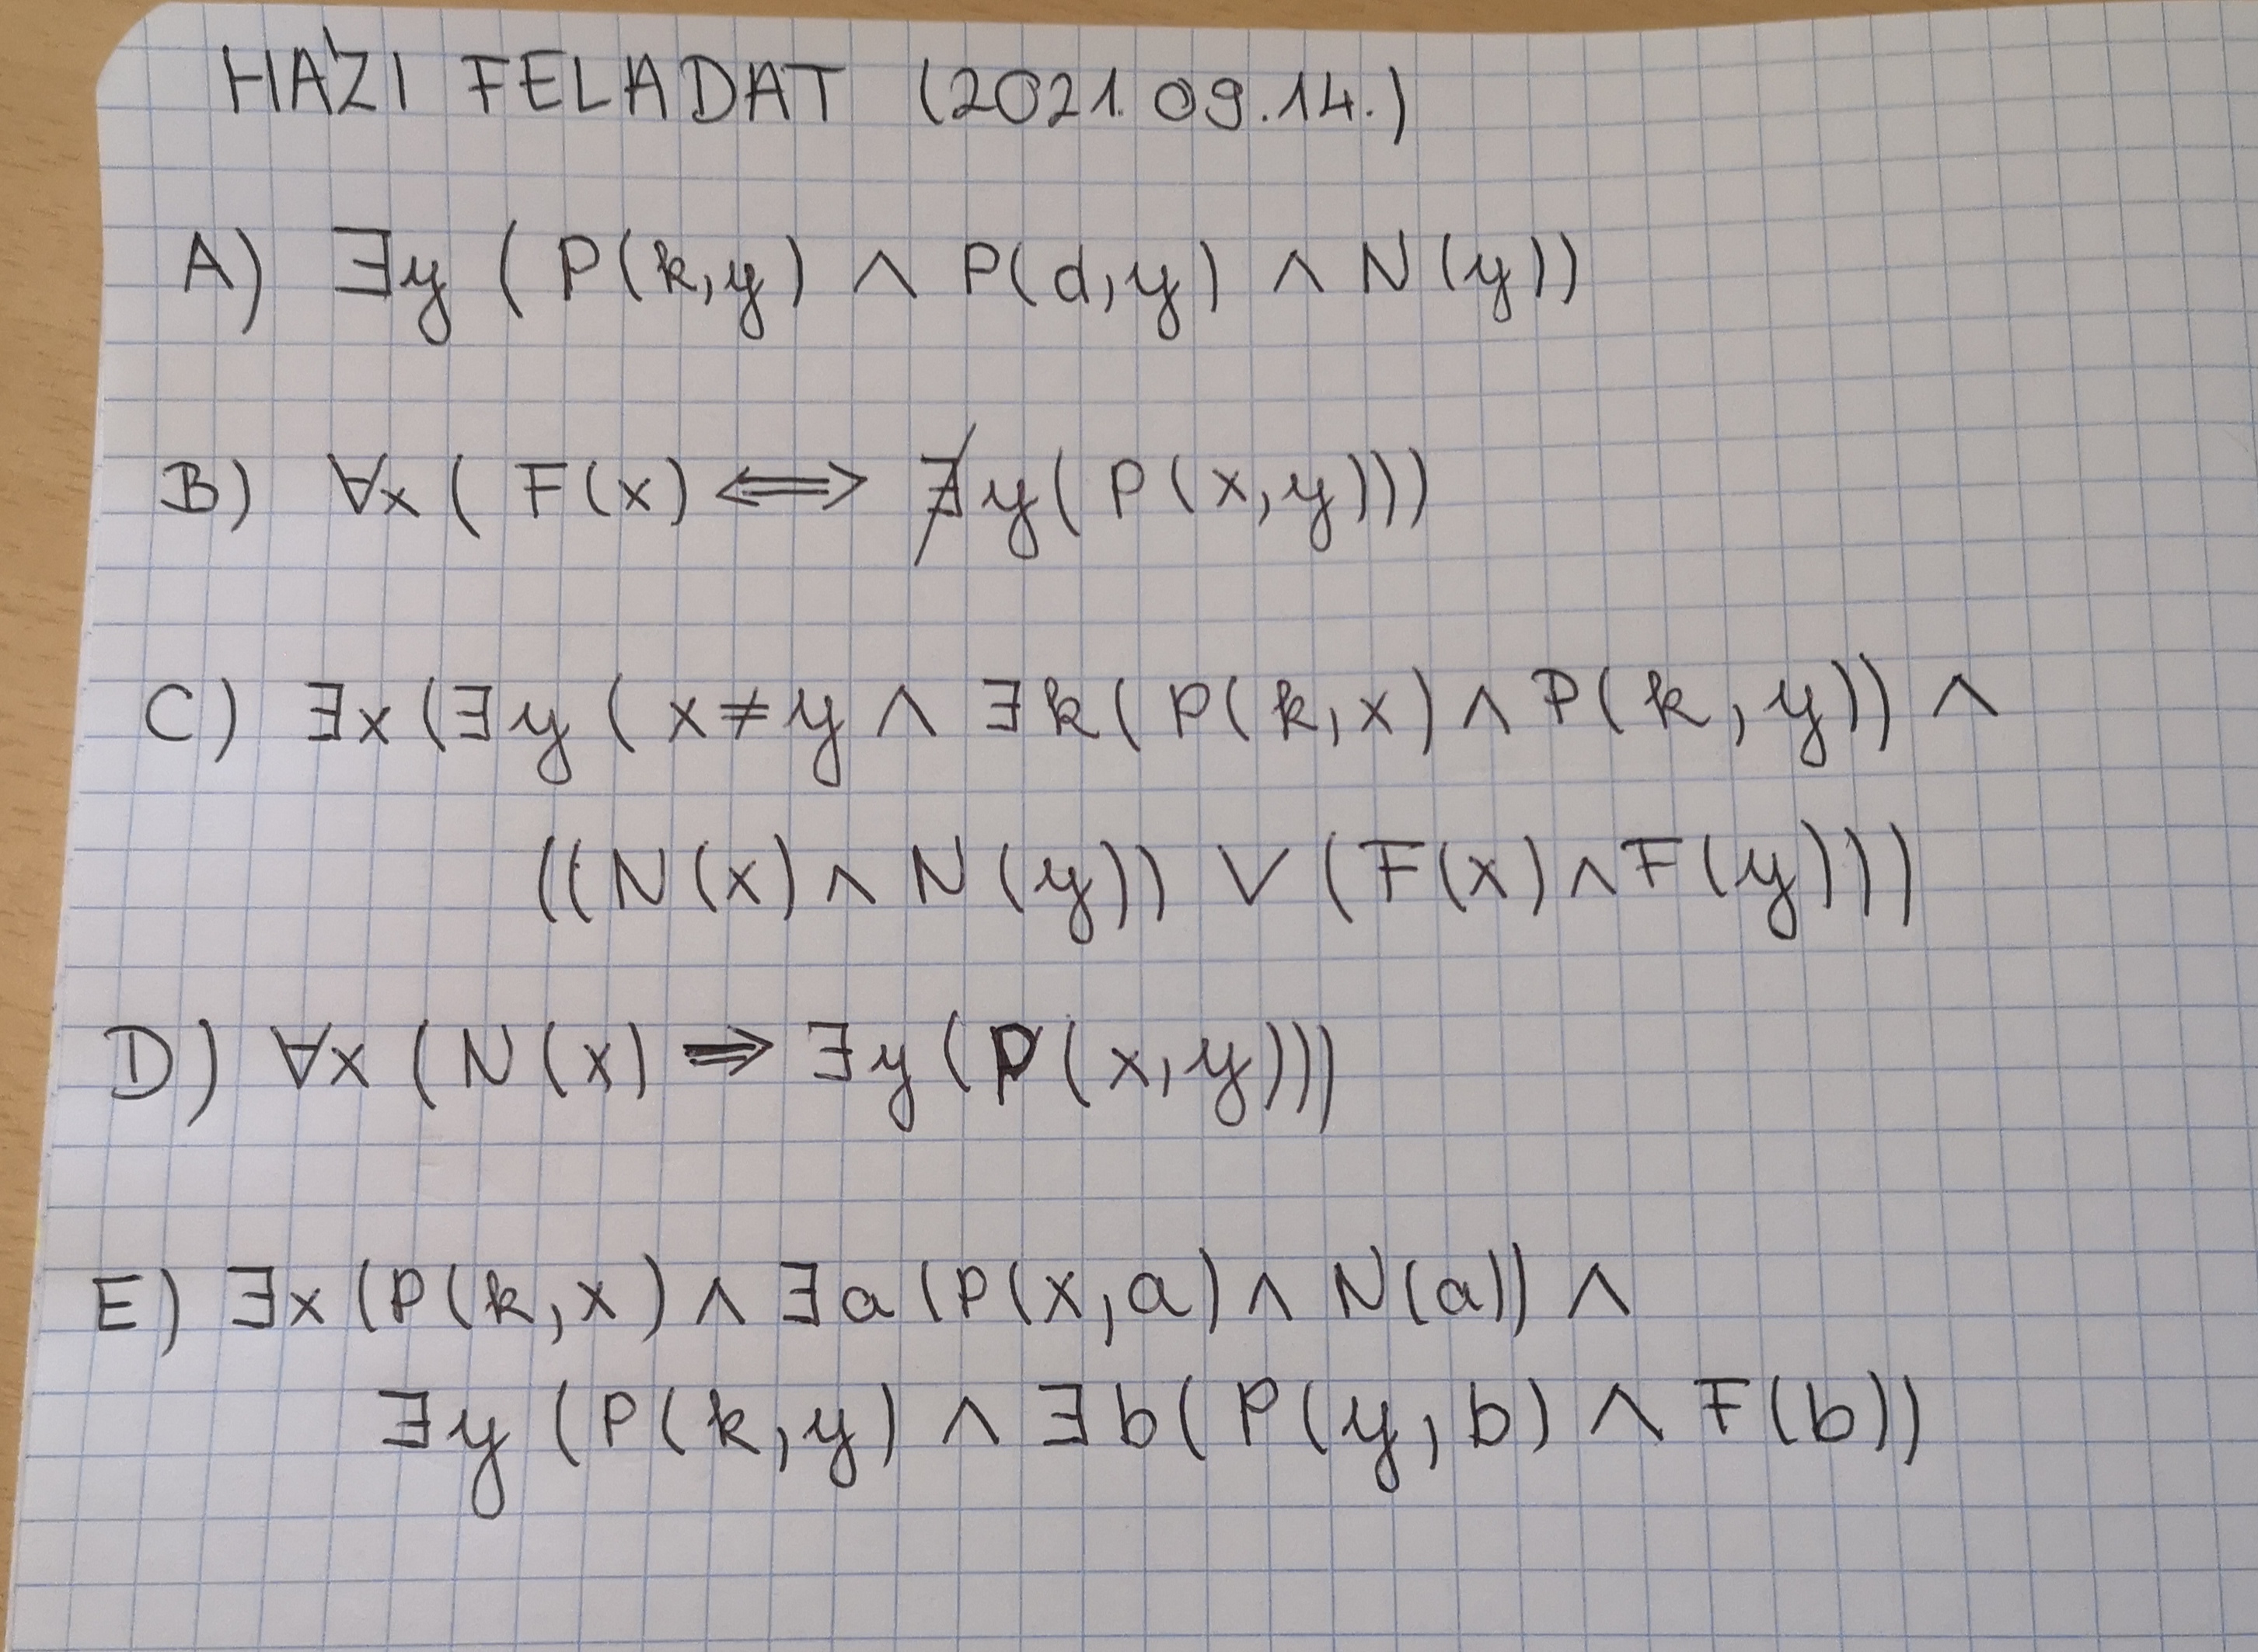 HÁZI FELADAT (2021.09.14.)
A) ∃y (P(k,y) ∧ P(d,y) ∧ N(y))
B) ∀x (F(x) ⟺ ∄y(P(x,y)))
C) ∃x(∃y(x≠y ∧ ∃k(P(k,x) ∧ P(k,y)) ∧
((N(x) ∧ N(y)) ∨ (F(x) ∧ F(y)))
D) ∀x (N(x) ⇒ ∃y(P(x,y)))
E) ∃x(P(k,x) ∧ ∃a(P(x,a) ∧ N(a)) ∧
∃y (P(k,y) ∧ ∃b(P(y,b) ∧ F(b))